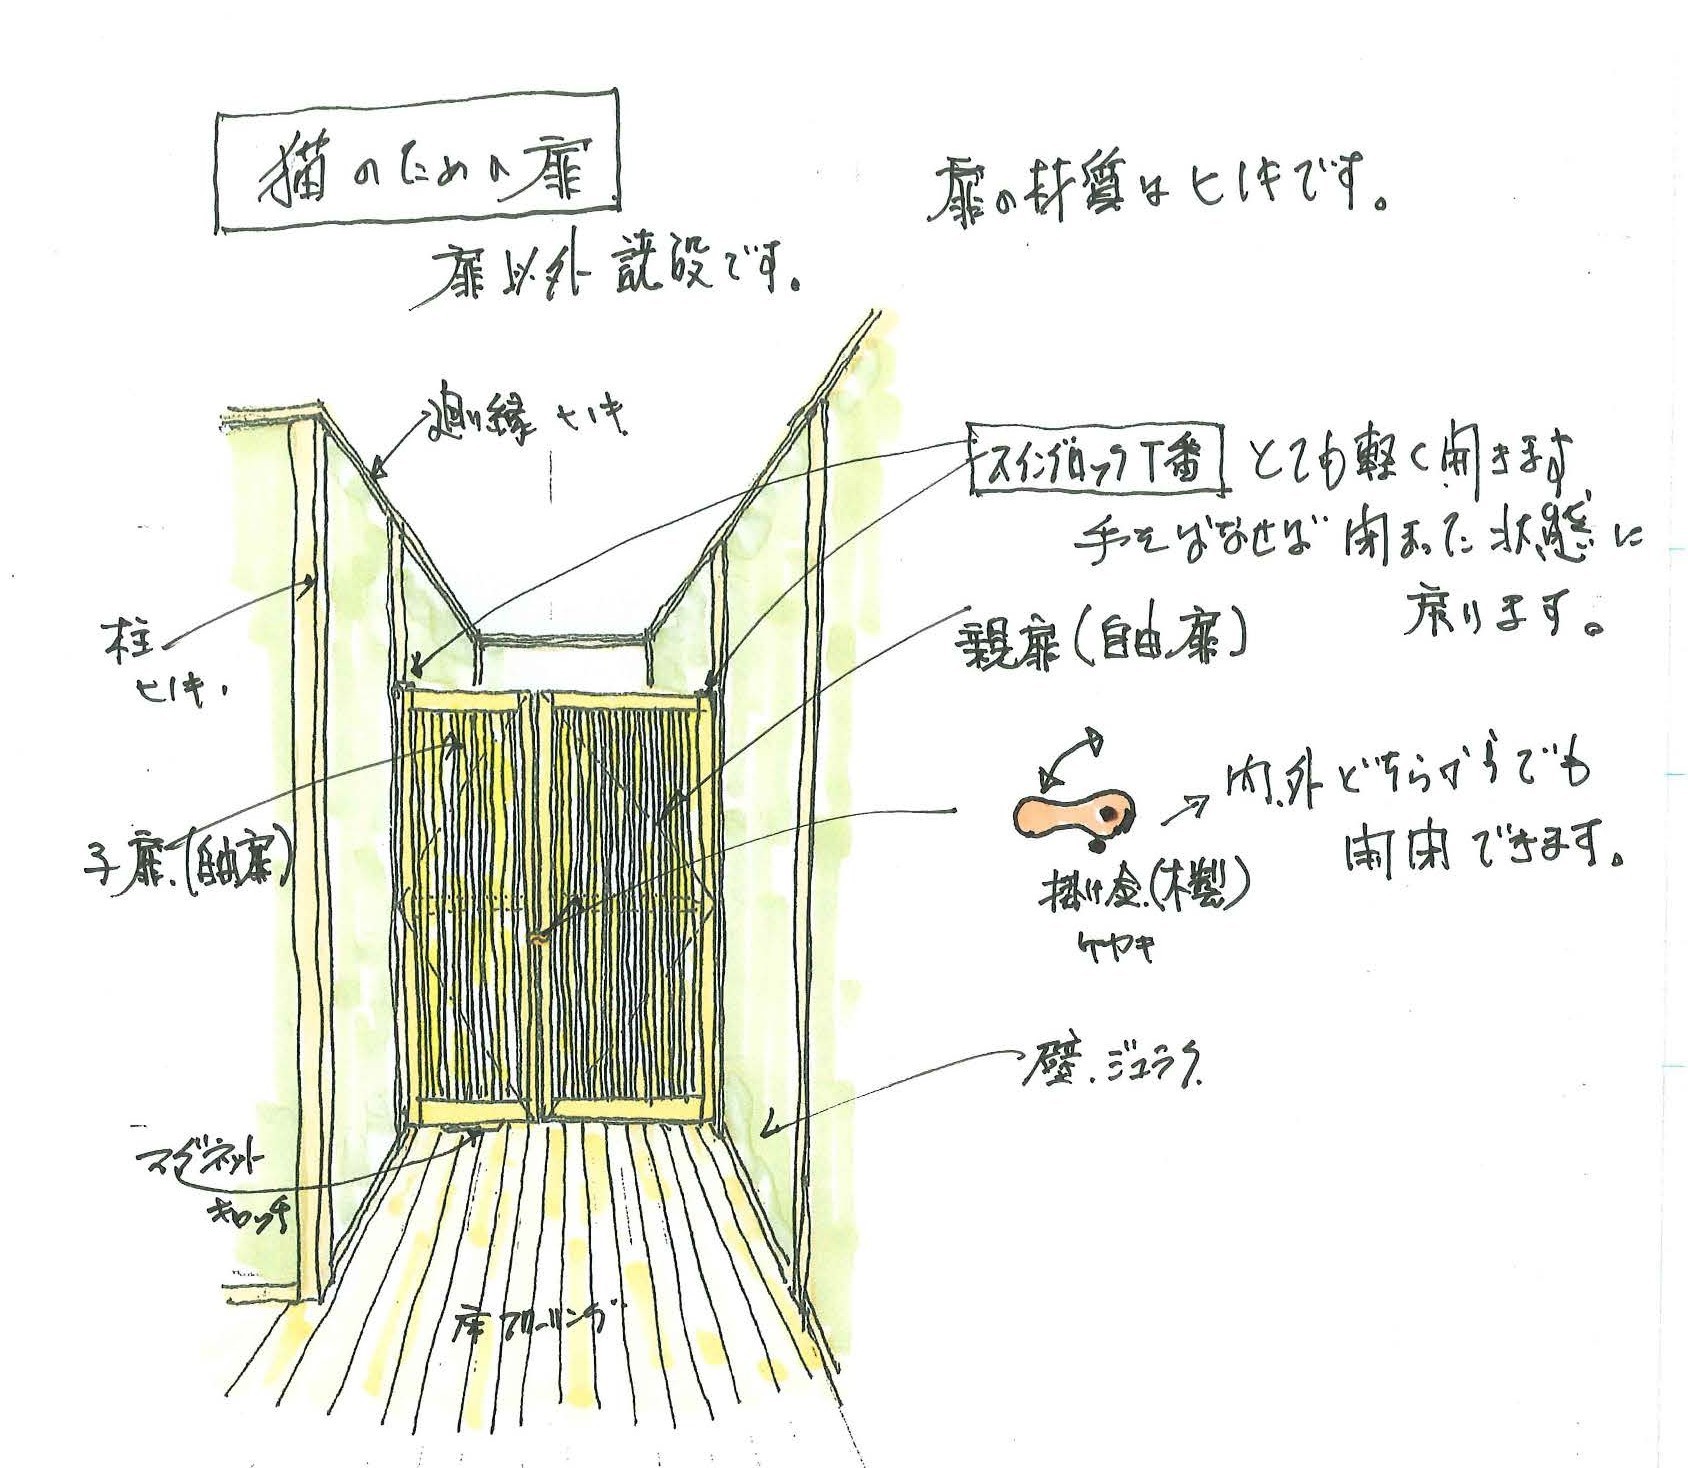 猫のための扉
扉以外既設です。
扉の材質はヒノキです。
廻り縁 ヒノキ
スイングロック丁番 とても軽く開きます
手をはなせば 閉まった状態に
戻ります。
柱
ヒノキ.
親扉(自由扉)
子扉.(自由扉)
内.外どちらからでも
開閉できます。
掛け金.(木製)
ケヤキ
壁.ジュラク.
マグネット
キャッチ
床フローリング